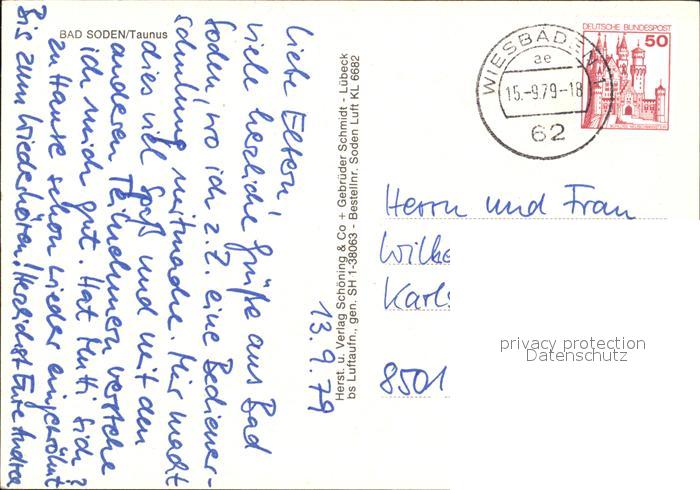 BAD SODEN/Taunus
13.9.79
Liebe Eltern,
viele herzliche Grüße aus Bad
Soden, wo ich z.Z. eine Bediener-
schulung mitmache. Mir macht
dies viel Spaß und mit den
anderen Teilnehmern verstehe
ich mich gut. Hat Mutti sich
zu Hause schon wieder eingewöhnt?
Bis zum Wiederhören! Herzlichst Eure Andrea
Herst. u. Verlag Schöning & Co + Gebrüder Schmidt - Lübeck
bs Luftaufn., gen. SH 1-38063 - Bestellnr. Soden Luft KL 6682
DEUTSCHE BUNDESPOST
50
SCHLOSS NEUSCHWANSTEIN
WIESBADEN 1
ae
15.-9.79-18
62
Herrn und Frau
Wilhe
Karls
8501
privacy protection
Datenschutz